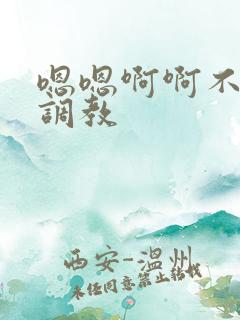 嗯嗯啊啊不
調教
西安-温州
未经同意禁止转载